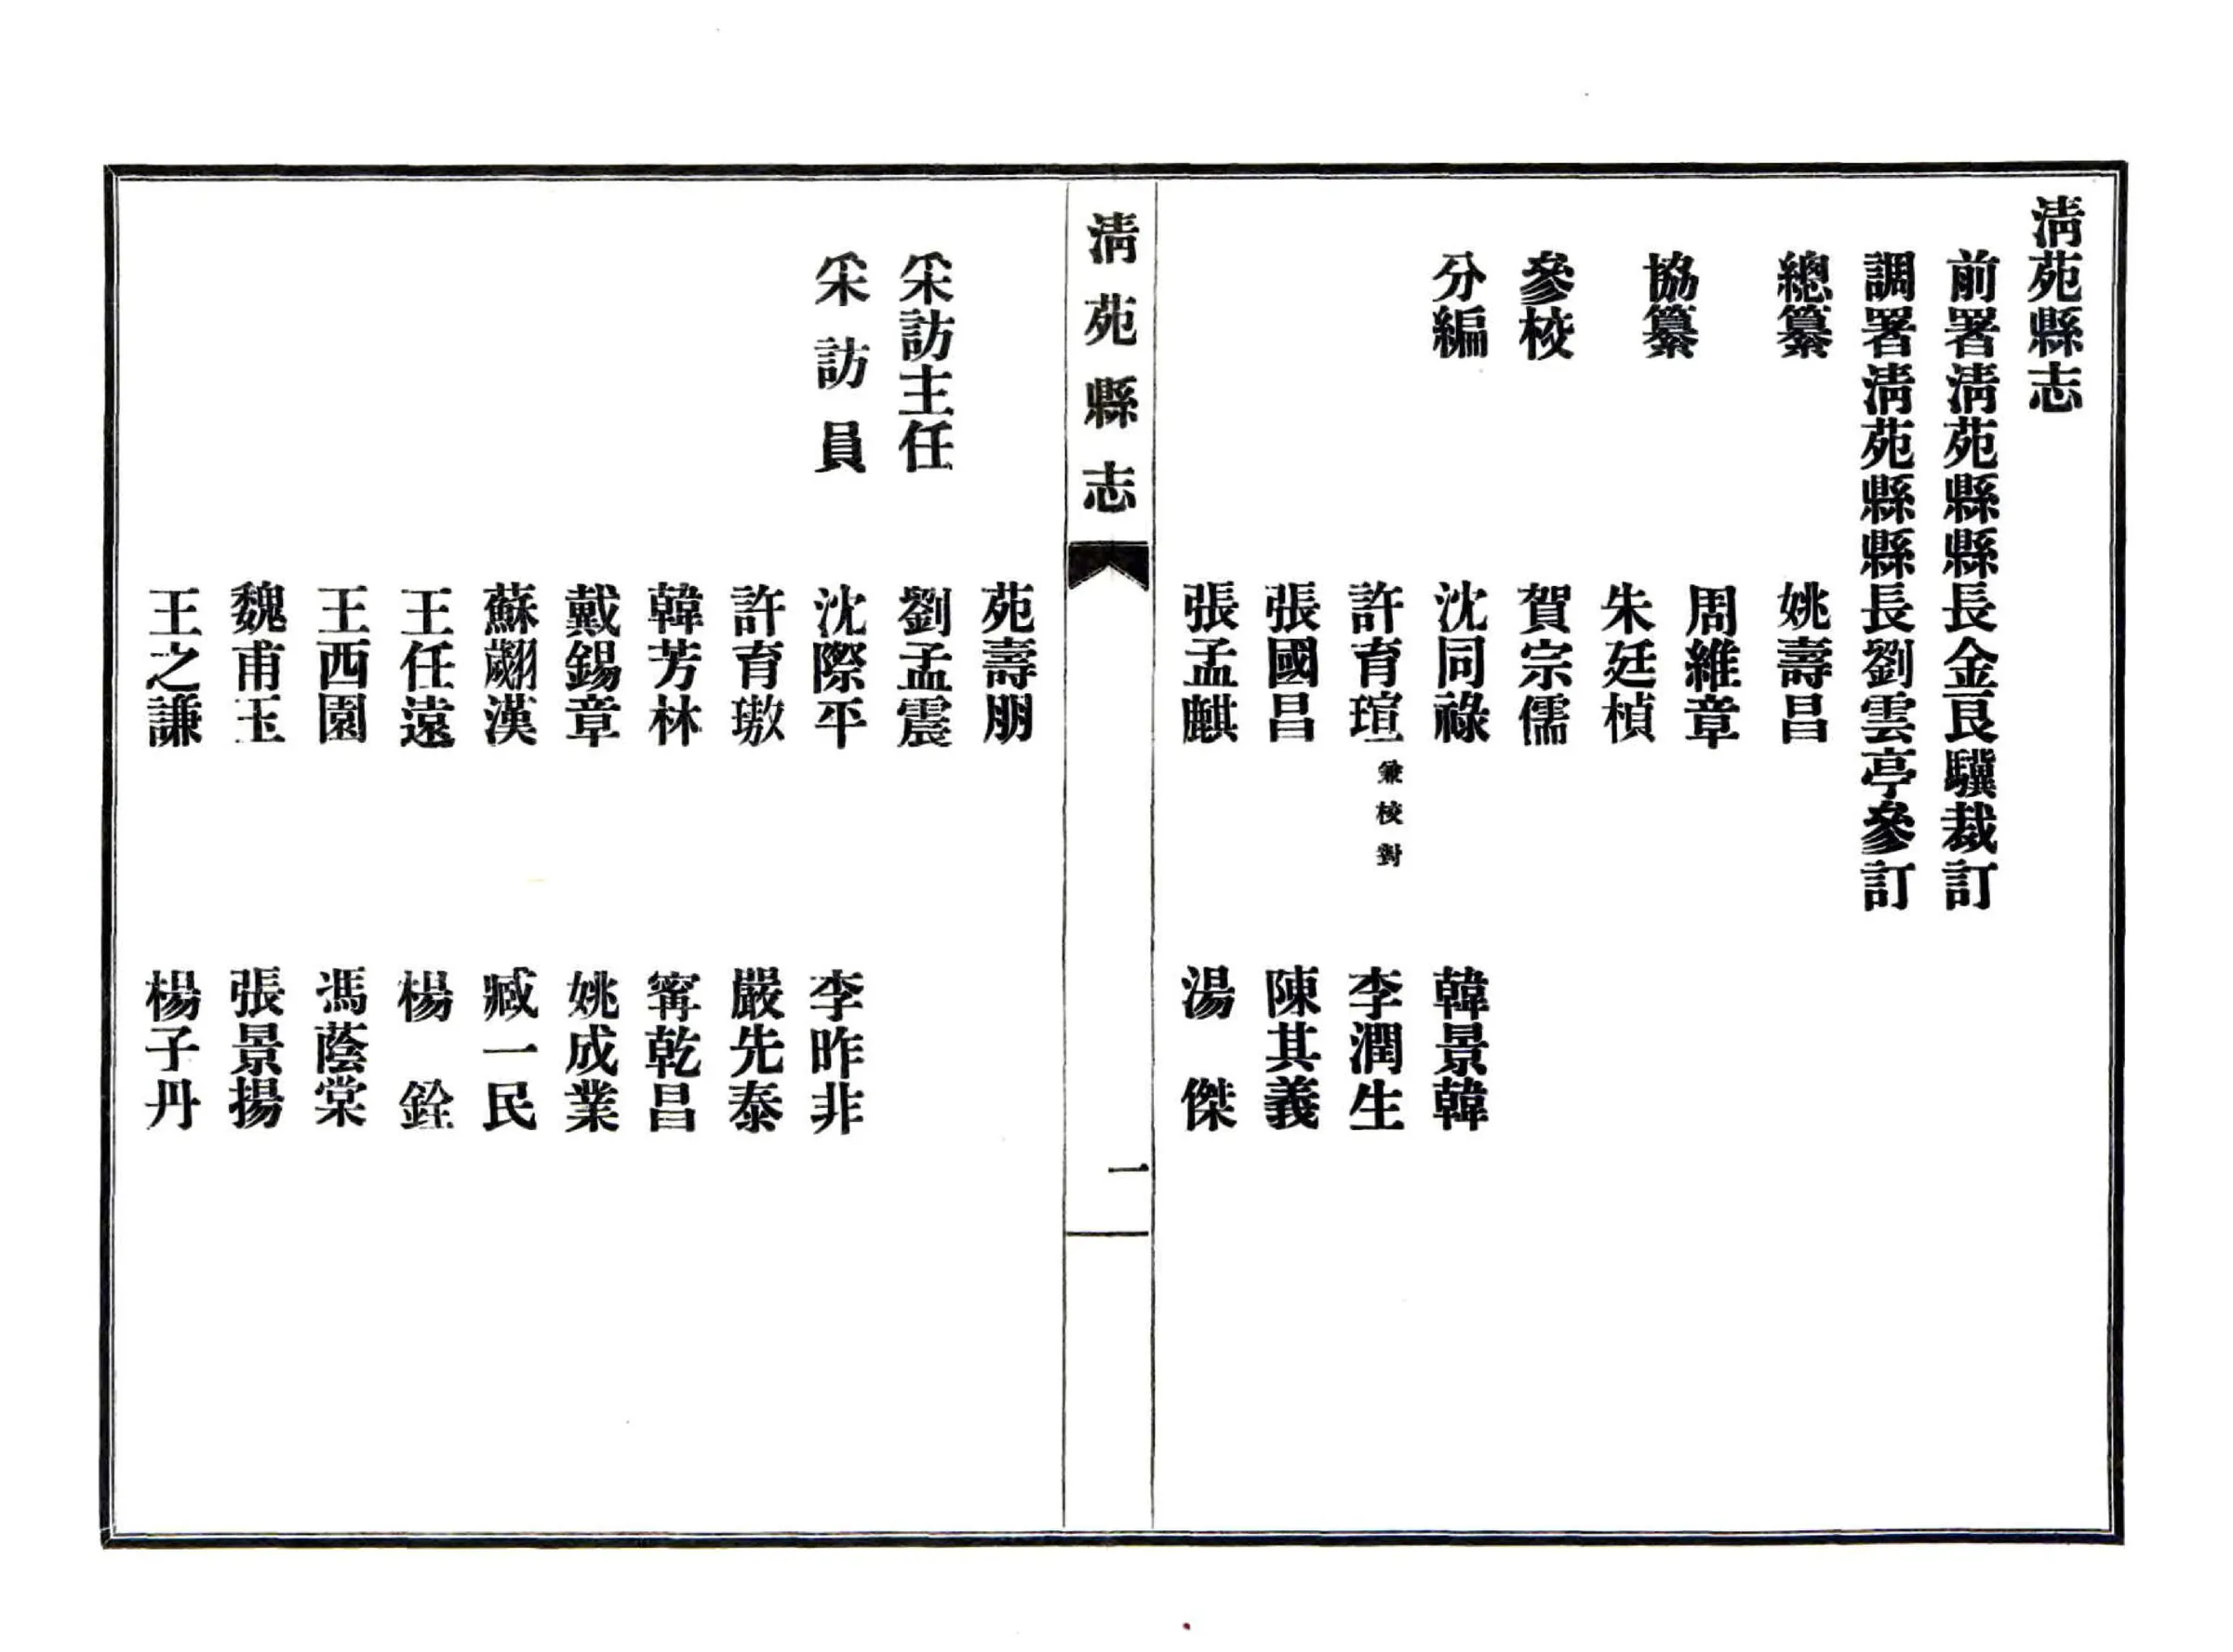 淸苑縣志
前署淸苑縣縣長金良驥裁訂
調署淸苑縣縣長劉雲亭參訂
總纂 姚壽昌
協纂 周維章
朱廷楨
參校 賀宗儒
分編 沈同祿 韓景韓
許育瑄兼校對 李潤生
張國昌 陳其義
張孟麒 湯傑
淸苑縣志 一
苑壽朋
采訪主任 劉孟震
采訪員 沈際平 李昨非
許育璈 嚴先泰
韓芳林 寗乾昌
戴錫章 姚成業
蘇翽漢 臧一民
王任遠 楊銓
王西園 馮蔭棠
魏甫玉 張景揚
王之謙 楊子丹